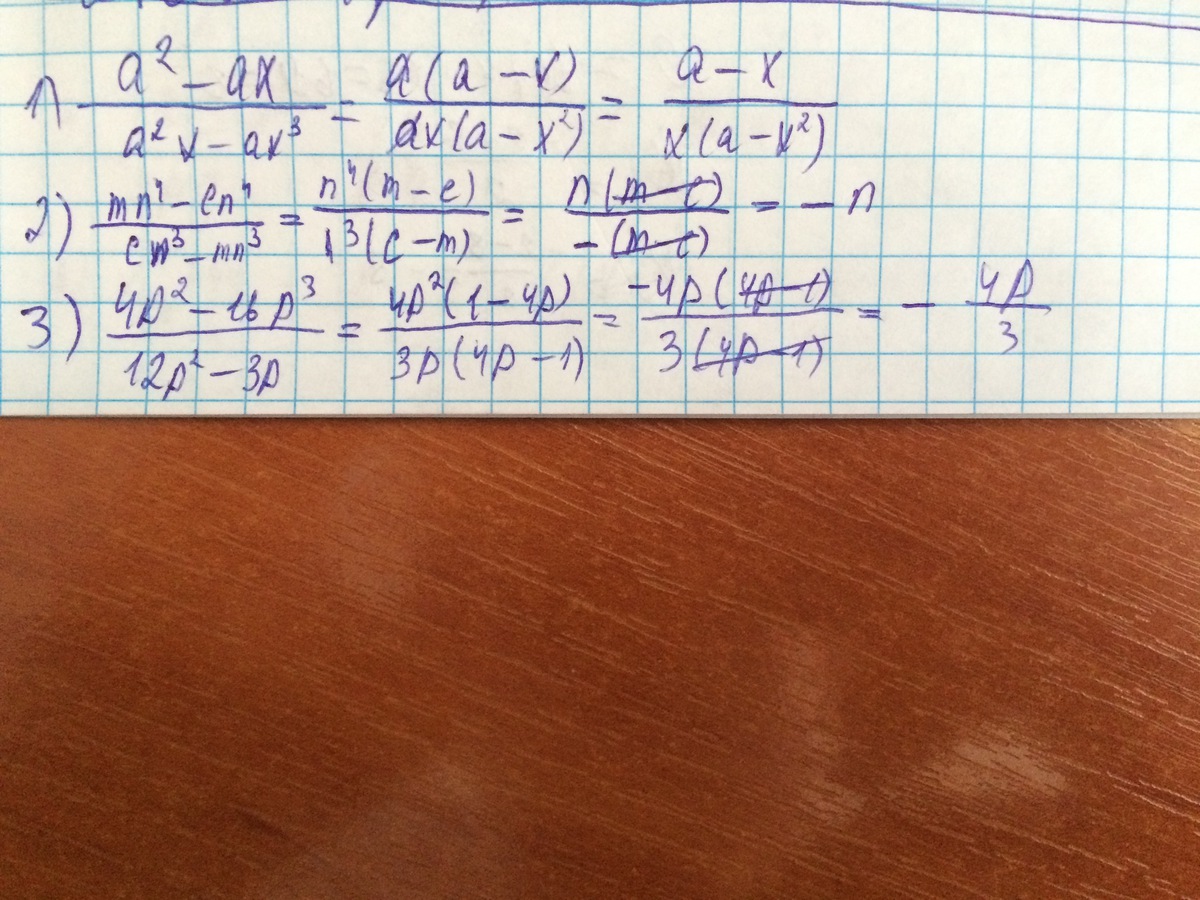 1) (a² - ax)/(a²x - ax³) = (a(a - x))/(ax(a - x²)) = (a - x)/(x(a - x²))
2) (mn⁴ - cn⁴)/(cn³ - mn³) = (n⁴(m - c))/(n³(c - m)) = (n(m - c))/(-(m - c)) = - n
3) (4p² - 16p³)/(12p² - 3p) = (4p²(1 - 4p))/(3p(4p - 1)) = (-4p(4p - 1))/(3(4p - 1)) = - 4p/3